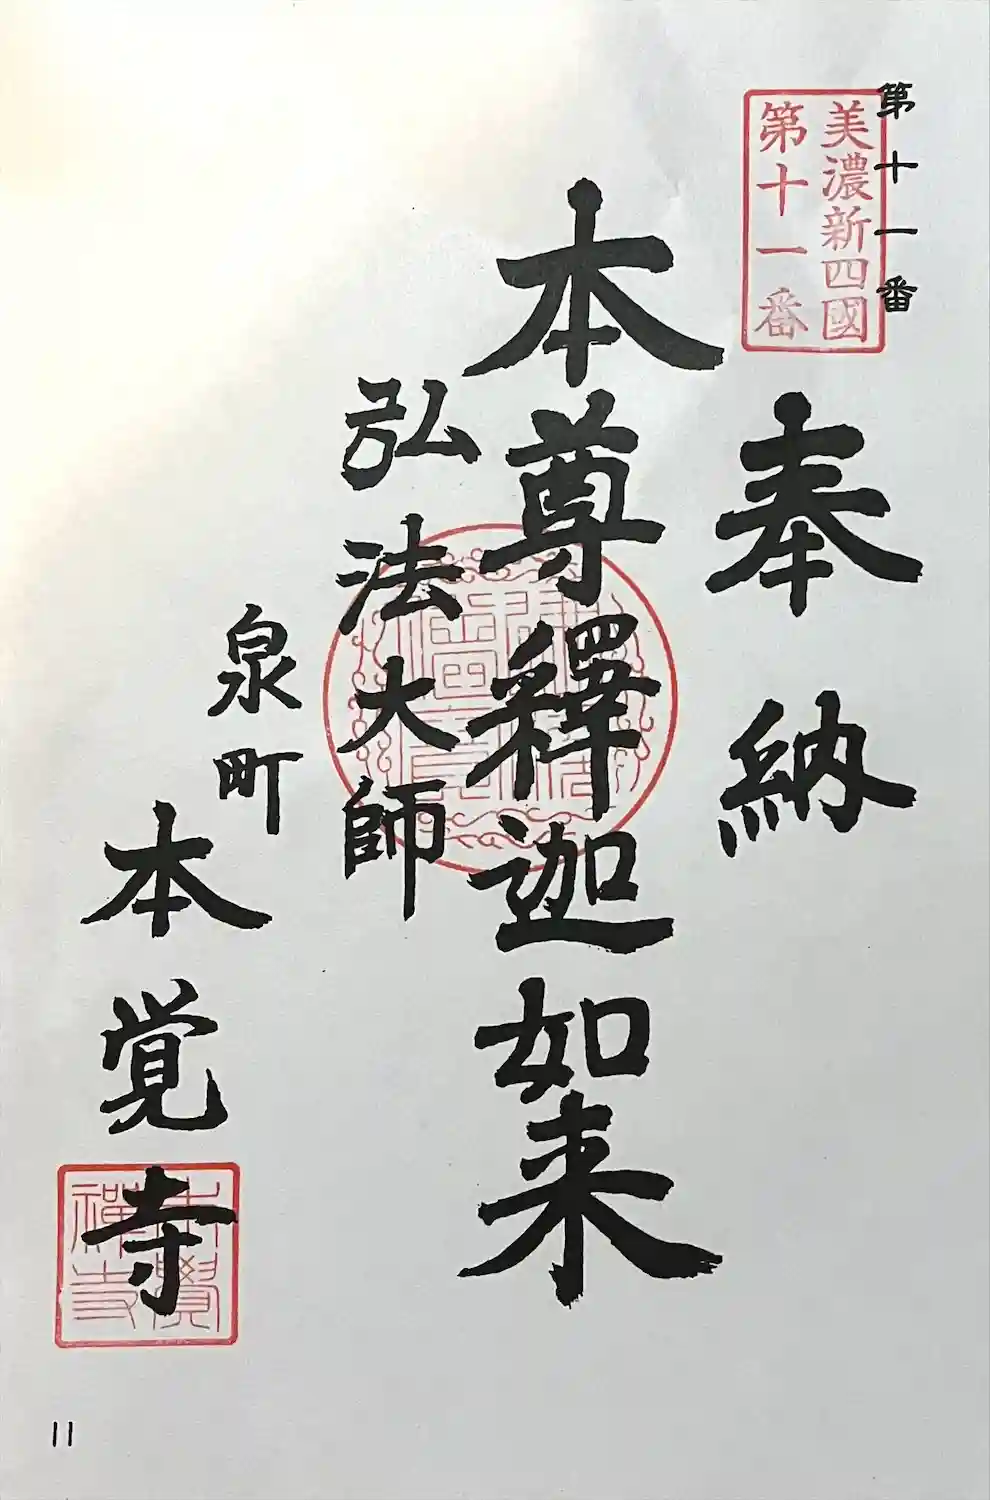 第十一番
美濃新四國
第十一番
奉納
本尊釋迦如来
弘法大師
泉町
本覚寺
本覺
禅寺
11